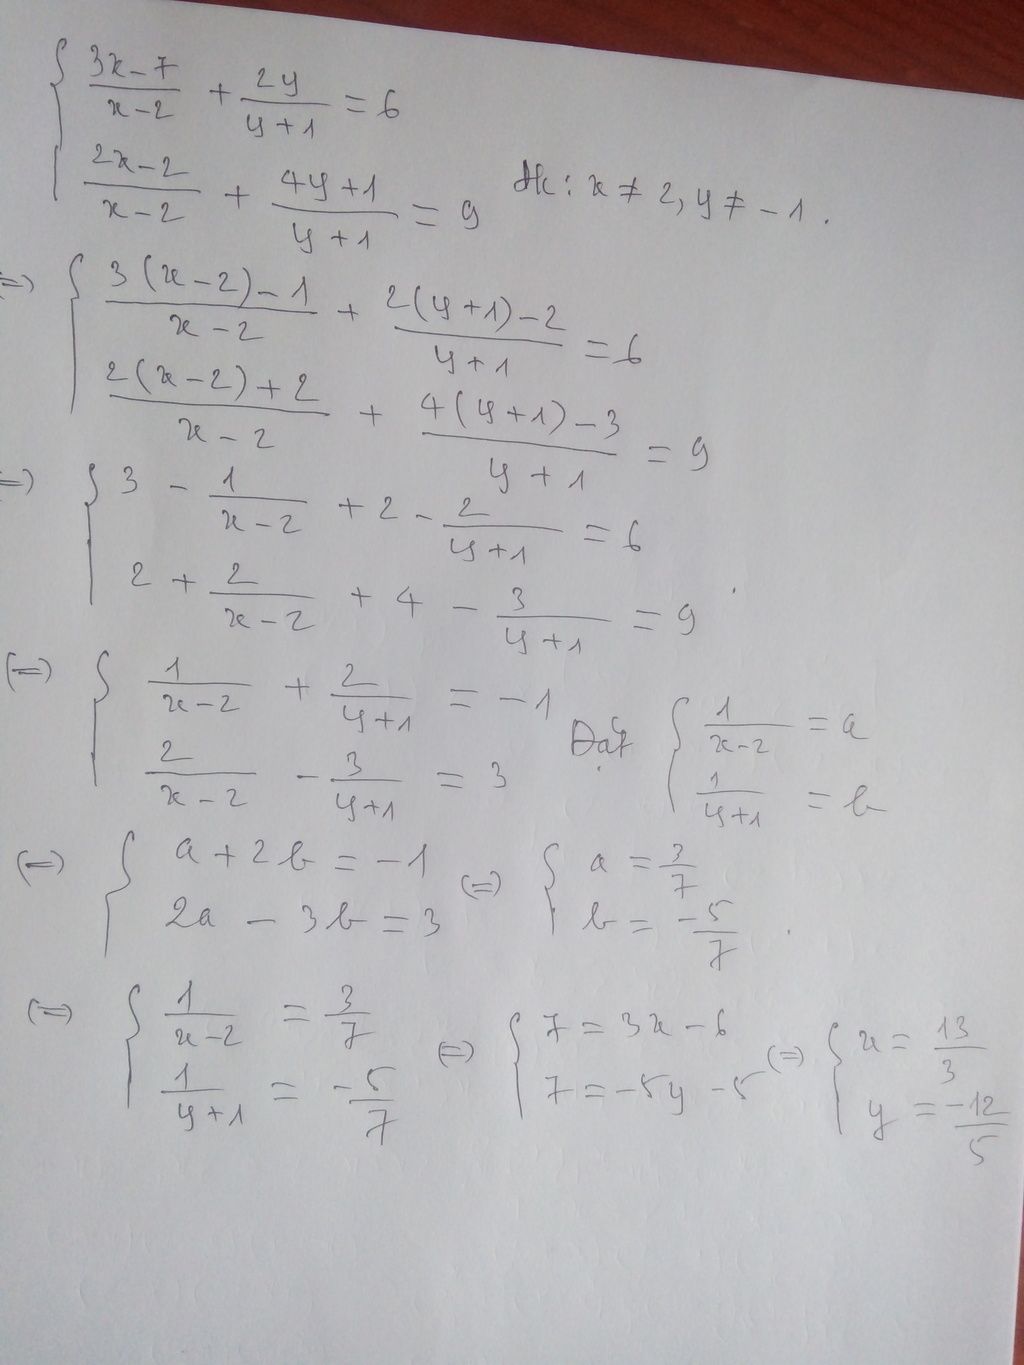 { (3x-7)/(x-2) + 2y/(y+1) = 6
(2x-2)/(x-2) + (4y+1)/(y+1) = 9 Đk: x ≠ 2, y ≠ -1.
(=) { (3(x-2)-1)/(x-2) + (2(y+1)-2)/(y+1) = 6
(2(x-2)+2)/(x-2) + (4(y+1)-3)/(y+1) = 9
(=) { 3 - 1/(x-2) + 2 - 2/(y+1) = 6
2 + 2/(x-2) + 4 - 3/(y+1) = 9
(=) { 1/(x-2) + 2/(y+1) = -1
2/(x-2) - 3/(y+1) = 3
Đặt { 1/(x-2) = a
1/(y+1) = b
(=) { a + 2b = -1
2a - 3b = 3
(=) { a = 3/7
b = -5/7
(=) { 1/(x-2) = 3/7
1/(y+1) = -5/7
(=) { 7 = 3x - 6
7 = -5y - 5
(=) { x = 13/3
y = -12/5